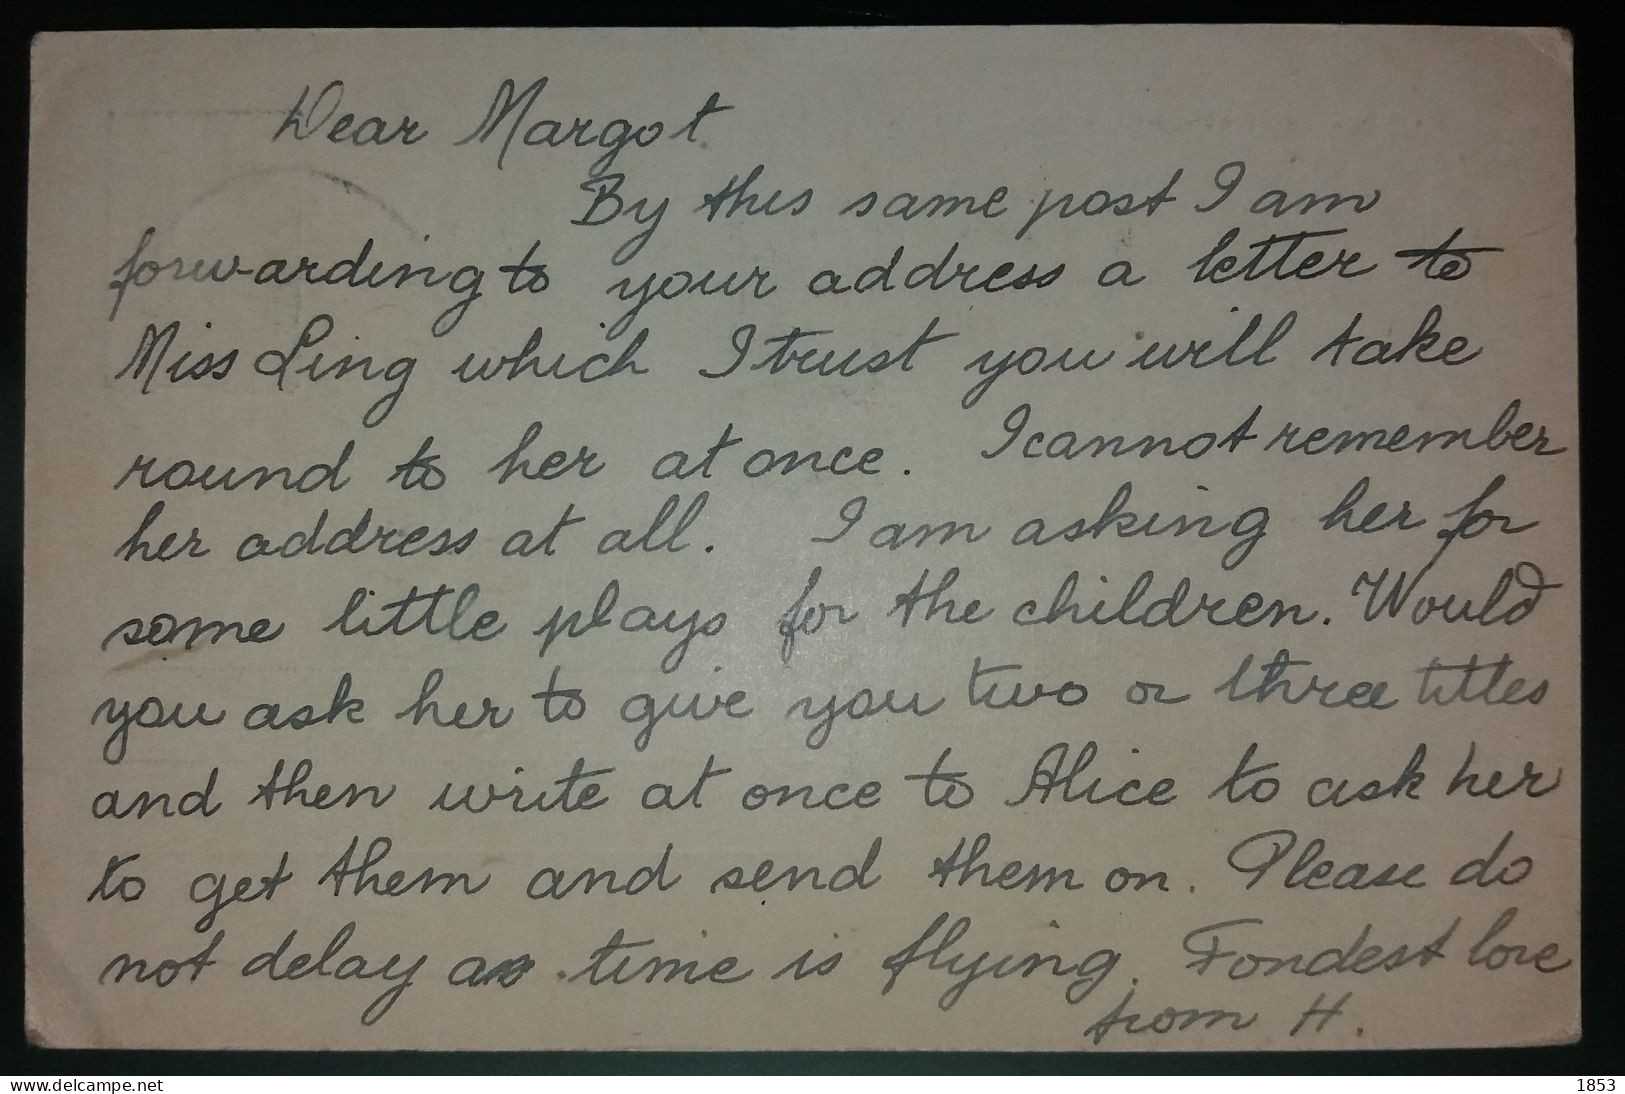 Dear Margot
By this same post I am
forwarding to your address a letter to
Miss Ling which I trust you will take
round to her at once. I cannot remember
her address at all. I am asking her for
some little plays for the children. Would
you ask her to give you two or three titles
and then write at once to Alice to ask her
to get them and send them on. Please do
not delay as time is flying. Fondest love
from H.
www.delcampe.net
1853